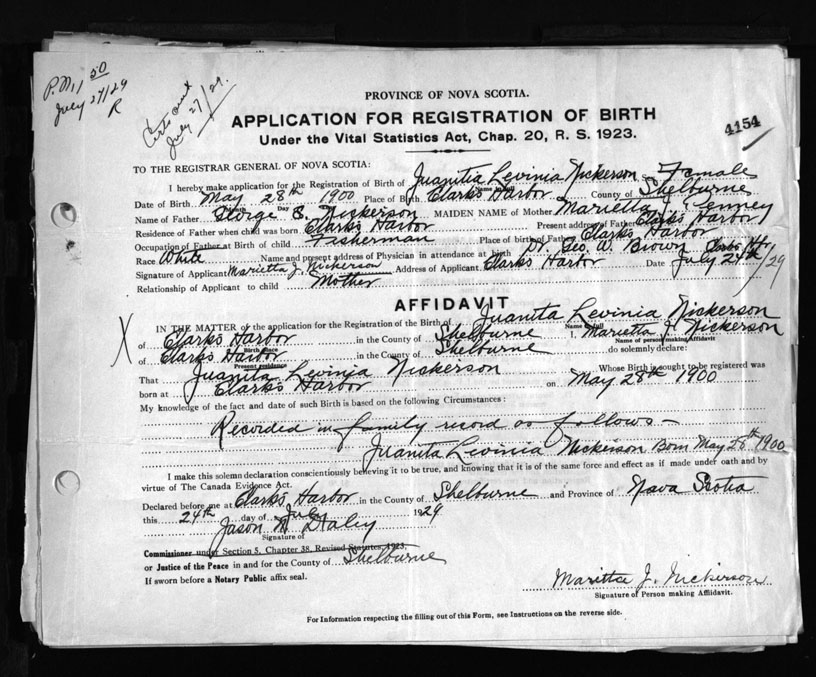 P.M. 1 50
July 27/29
R
July 27/29.
PROVINCE OF NOVA SCOTIA.
APPLICATION FOR REGISTRATION OF BIRTH
Under the Vital Statistics Act, Chap. 20, R. S. 1923.
4154
TO THE REGISTRAR GENERAL OF NOVA SCOTIA:
I hereby make application for the Registration of Birth of Juanitia Levinia Nickerson Female
Name in full
Date of Birth May 28th 1900 Place of Birth Clarks Harbor County of Shelburne
Day
Name of Father George S. Nickerson MAIDEN NAME of Mother Marietta J. Kenney
Residence of Father when child was born Clarks Harbor Present address of Father Clarks Harbor
Occupation of Father at Birth of child Fisherman Place of birth of Father Clarks Harbor
Race White Name and present address of Physician in attendance at birth Dr. Geo. W. Brown Clarks Hbr
Signature of Applicant Marietta J. Nickerson Address of Applicant Clarks Harbor Date July 24th /29
Relationship of Applicant to child Mother
AFFIDAVIT
X
IN THE MATTER of the application for the Registration of the Birth of Juanita Levinia Nickerson
Name in full
of Clarks Harbor in the County of Shelburne I, Marietta J. Nickerson
Birth Place Name of person making Affidavit
of Clarks Harbor in the County of Shelburne do solemnly declare:
Present residence
That Juanita Levinia Nickerson Whose Birth is sought to be registered was
born at Clarks Harbor on May 28th 1900
My knowledge of the fact and date of such Birth is based on the following Circumstances:
Recorded in family record as follows -
Juanita Levinia Nickerson Born May 28th 1900
I make this solemn declaration conscientiously believing it to be true, and knowing that it is of the same force and effect as if made under oath and by
virtue of The Canada Evidence Act.
Declared before me at Clarks Harbor in the County of Shelburne and Province of Nova Scotia
this 24th day of July 1929
Jason W Staley
Signature of
Commissioner under Section 5, Chapter 38, Revised Statutes, 1923,
or Justice of the Peace in and for the County of Shelburne
If sworn before a Notary Public affix seal.
Marietta J. Nickerson
Signature of Person making Affidavit.
For Information respecting the filling out of this Form, see Instructions on the reverse side.